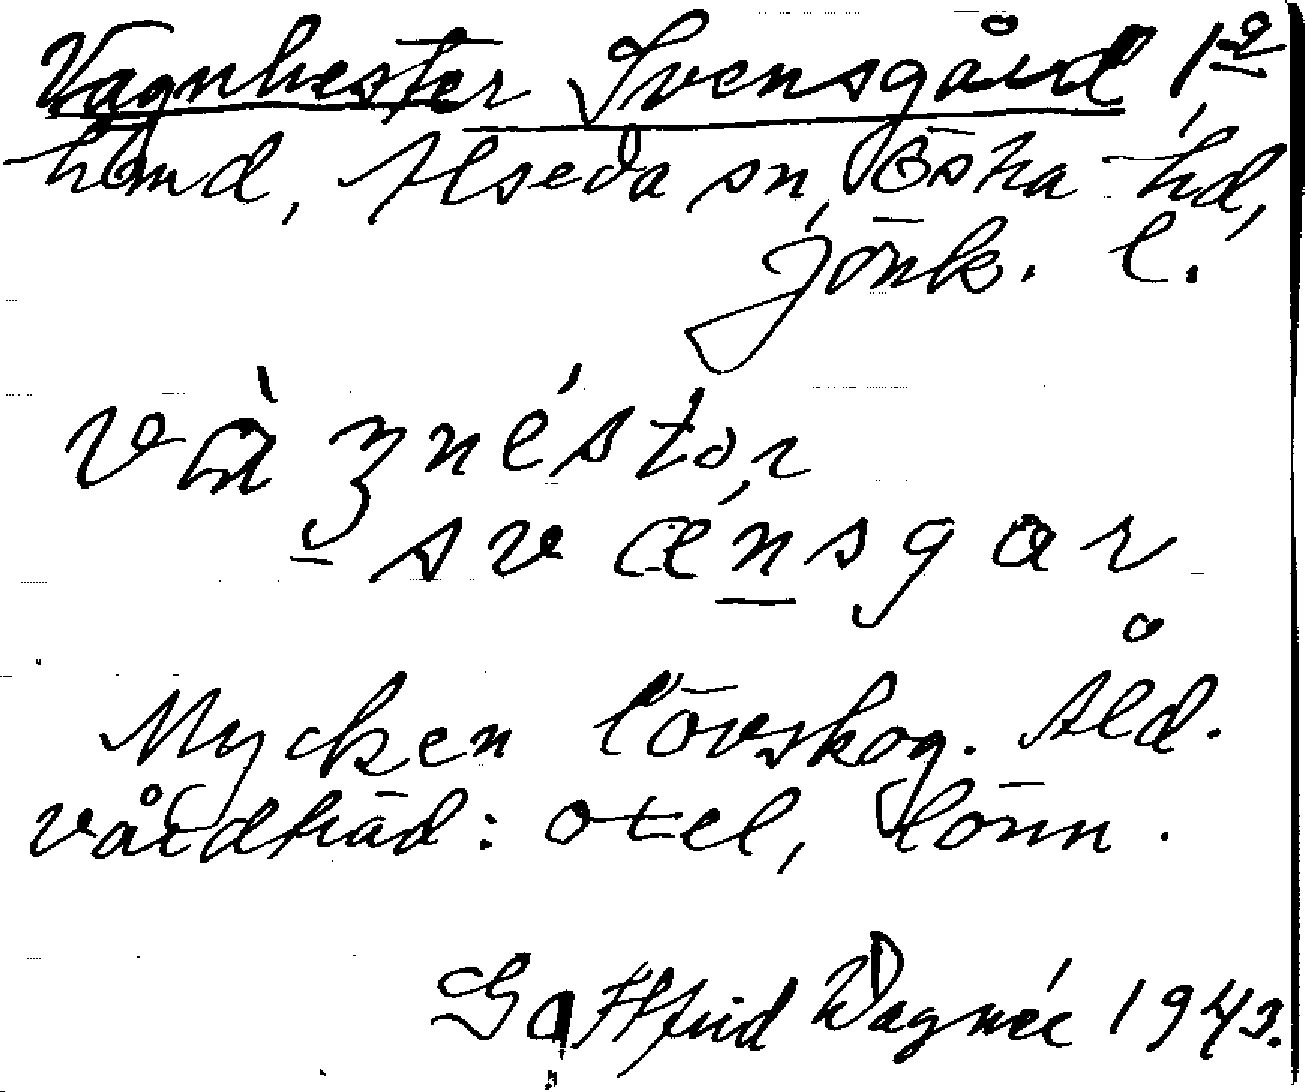 Vagnhester Svensgård, 1 a
hemd, Alseda sn, Östra hd,
Jönk. l.
và ʒnéstər
svænsgar
Mycken lövskog. Åld.
vårdträd: oxel, lönn.
Gottfrid Wagnér 1943.